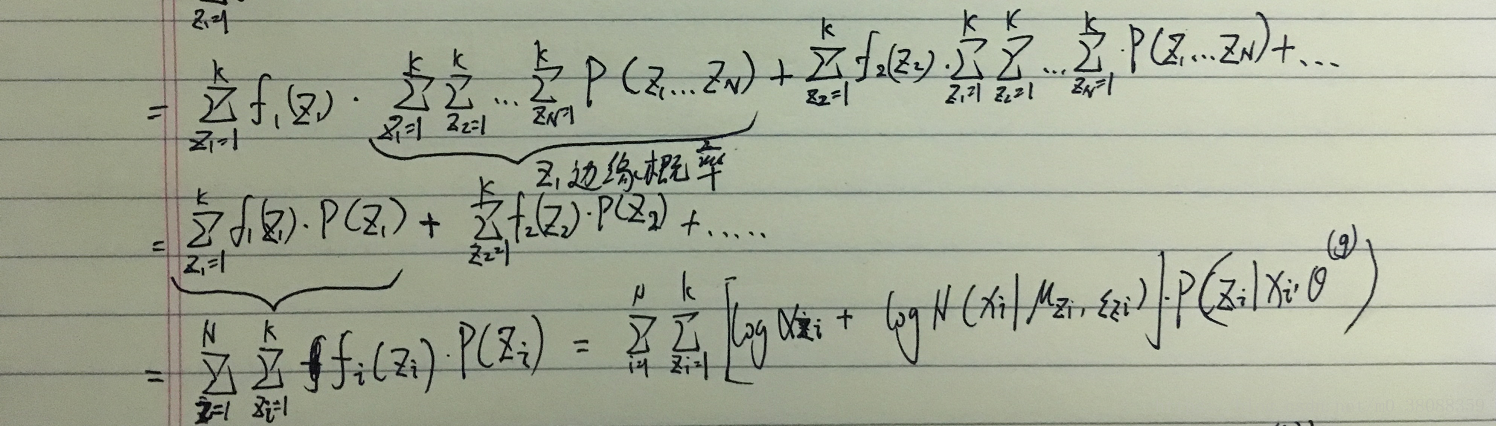 z₁=1
= Σ_{z₁=1}^{k} f₁(z₁) · Σ_{z₁=1}^{k} Σ_{z₂=1}^{k} ... Σ_{z_N=1}^{k} P(z₁...z_N) + Σ_{z₂=1}^{k} f₂(z₂) · Σ_{z₁=1}^{k} Σ_{z₂=1}^{k} ... Σ_{z_N=1}^{k} · P(z₁...z_N) + ...
z₁边缘概率
= Σ_{z₁=1}^{k} f₁(z₁) · P(z₁) + Σ_{z₂=1}^{k} f₂(z₂) · P(z₂) + .....
= Σ_{i=1}^{N} Σ_{z_i=1}^{k} f_i(z_i) · P(z_i) = Σ_{i=1}^{N} Σ_{z_i=1}^{k} [log α_{z_i} + log N(x_i|μ_{z_i}, Σ_{z_i})] · P(z_i|x_i, θ^{(g)})